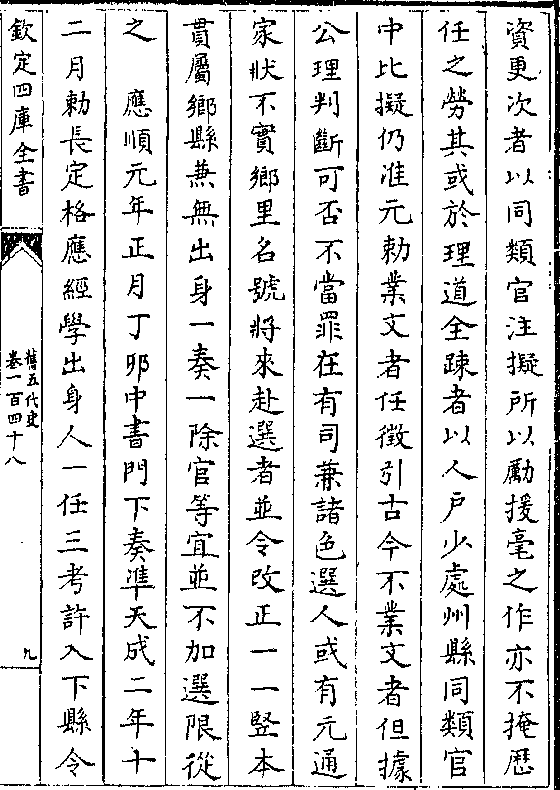 資更次者以同類官注擬所以勵援毫之作亦不掩歷
任之勞其或於理道全疎者以人戸少處州縣同類官
中比擬仍准元勅業文者任徵引古今不業文者但據
公理判斷可否不當罪在有司兼諸色選人或有元通
家狀不實鄉里名號將來赴選者並令改正一一竪本
貫屬鄉縣兼無出身一奏一除官等宜並不加選限從
之　應順元年正月丁卯中書門下奏準天成二年十
二月勅長定格應經學出身人一任三考許入下縣令
欽定四庫全書
舊五代史
卷一百四十八
九